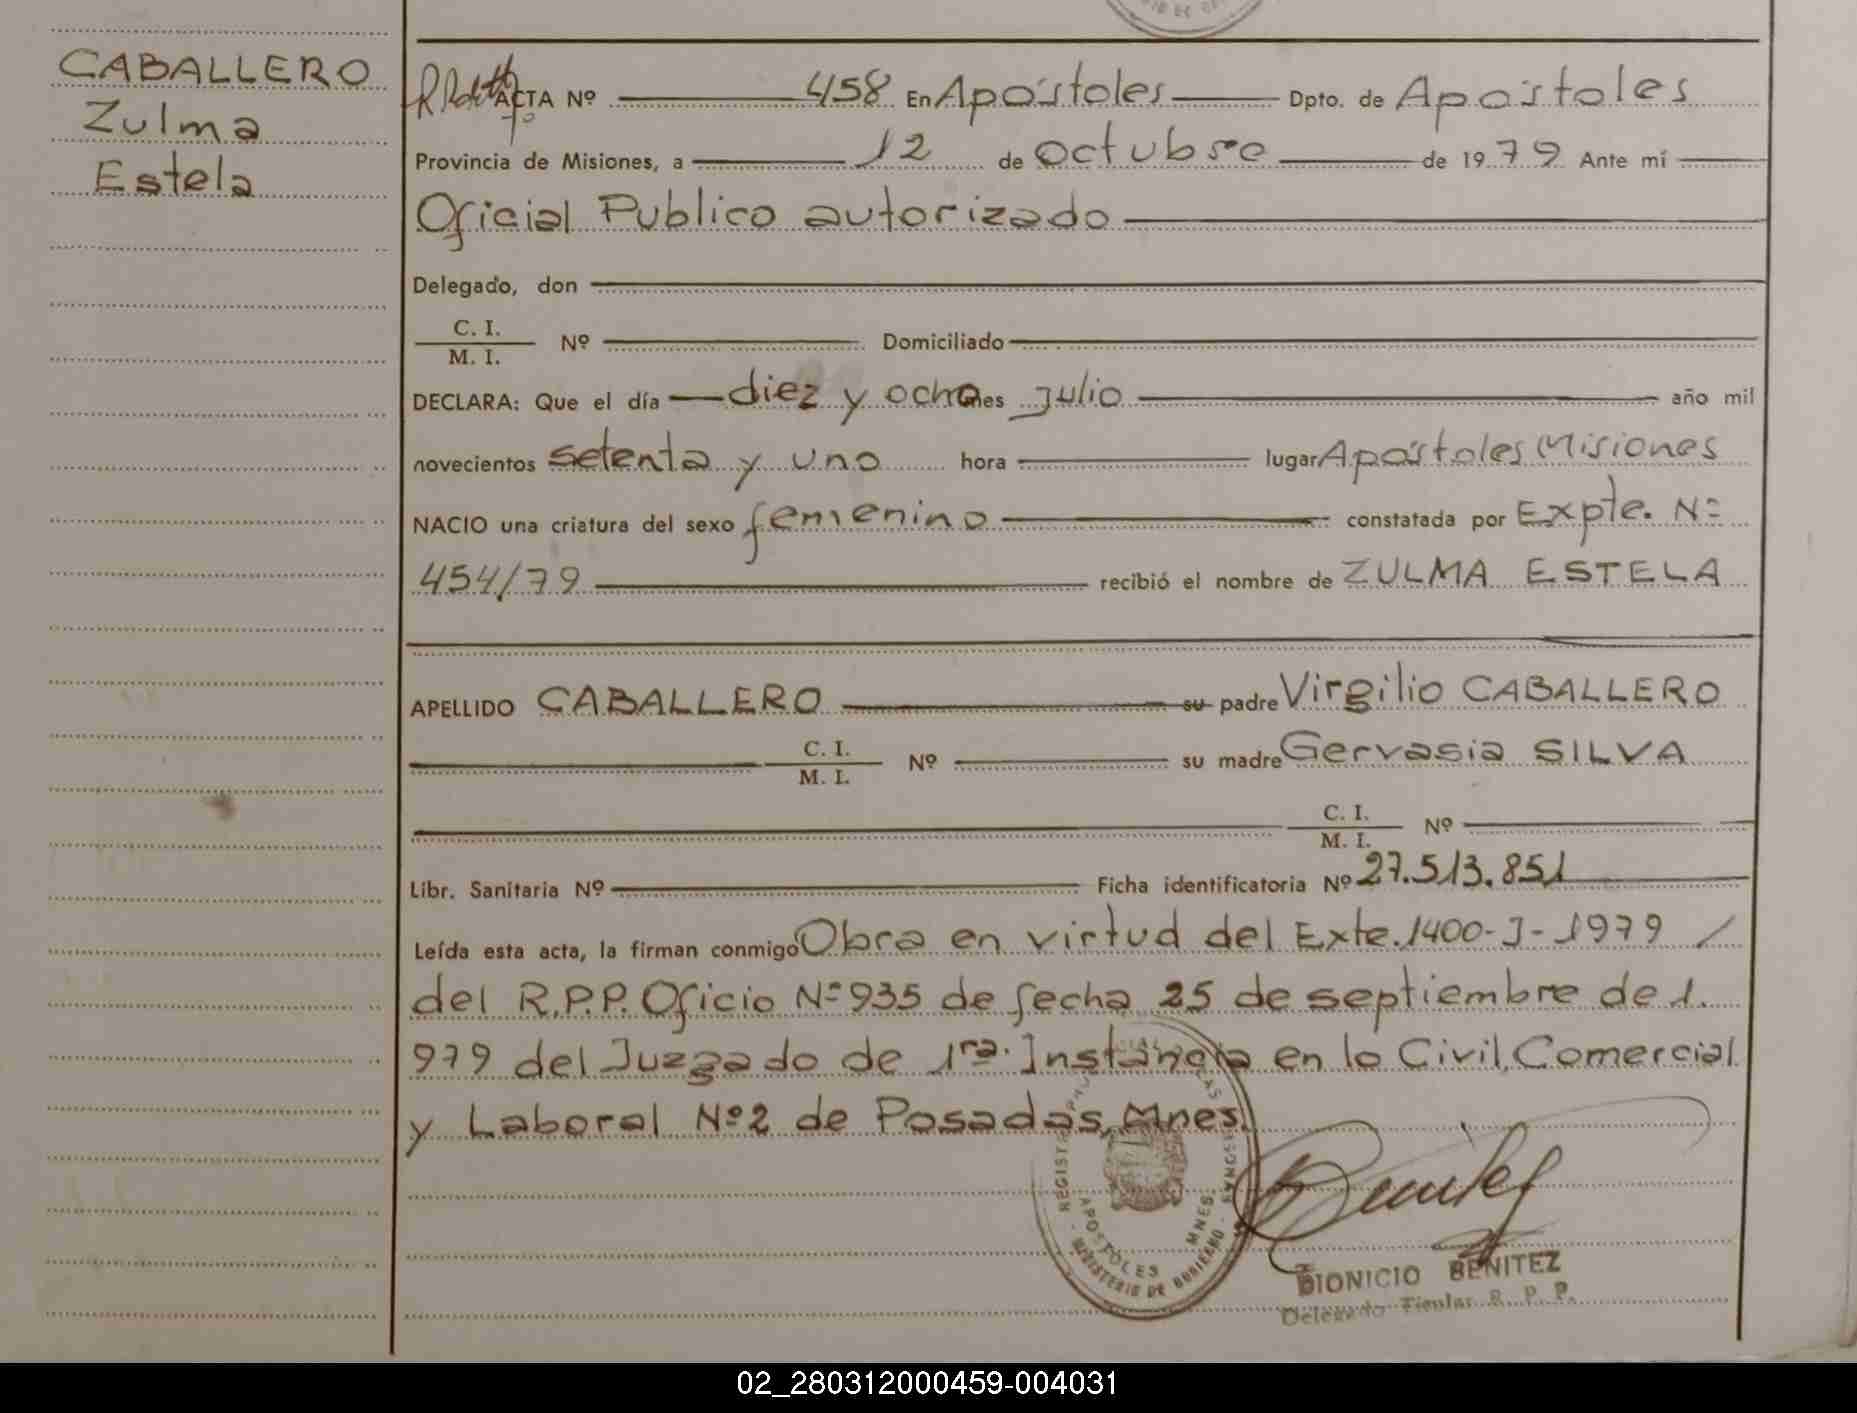 CABALLERO
Zulma
Estela
ACTA Nº 458 En Apóstoles Dpto. de Apóstoles
Provincia de Misiones, a 12 de Octubre de 1979 Ante mí
Oficial Publico autorizado
Delegado, don
C. I.
M. I. Nº Domiciliado
DECLARA: Que el día diez y ocho mes julio año mil
novecientos setenta y uno hora lugar Apóstoles Misiones
NACIO una criatura del sexo femenino constatada por Expte. Nº
454/79 recibió el nombre de ZULMA ESTELA
APELLIDO CABALLERO su padre Virgilio CABALLERO
C. I.
M. I. Nº su madre Gervasia SILVA
C. I.
M. I. Nº
Libr. Sanitaria Nº Ficha identificatoria Nº 27.513.851
Leída esta acta, la firman conmigo Obra en virtud del Exte. 1400-J-1979 /
del R.P.P. Oficio Nº 935 de fecha 25 de septiembre de 1.
979 del Juzgado de 1ra. Instancia en lo Civil, Comercial
y Laboral Nº 2 de Posadas, Mnes.
APOSTOLES MNES.
MINISTERIO DE GOBIERNO
DIONICIO BENITEZ
Delegado Titular R. P. P.
02_280312000459-004031